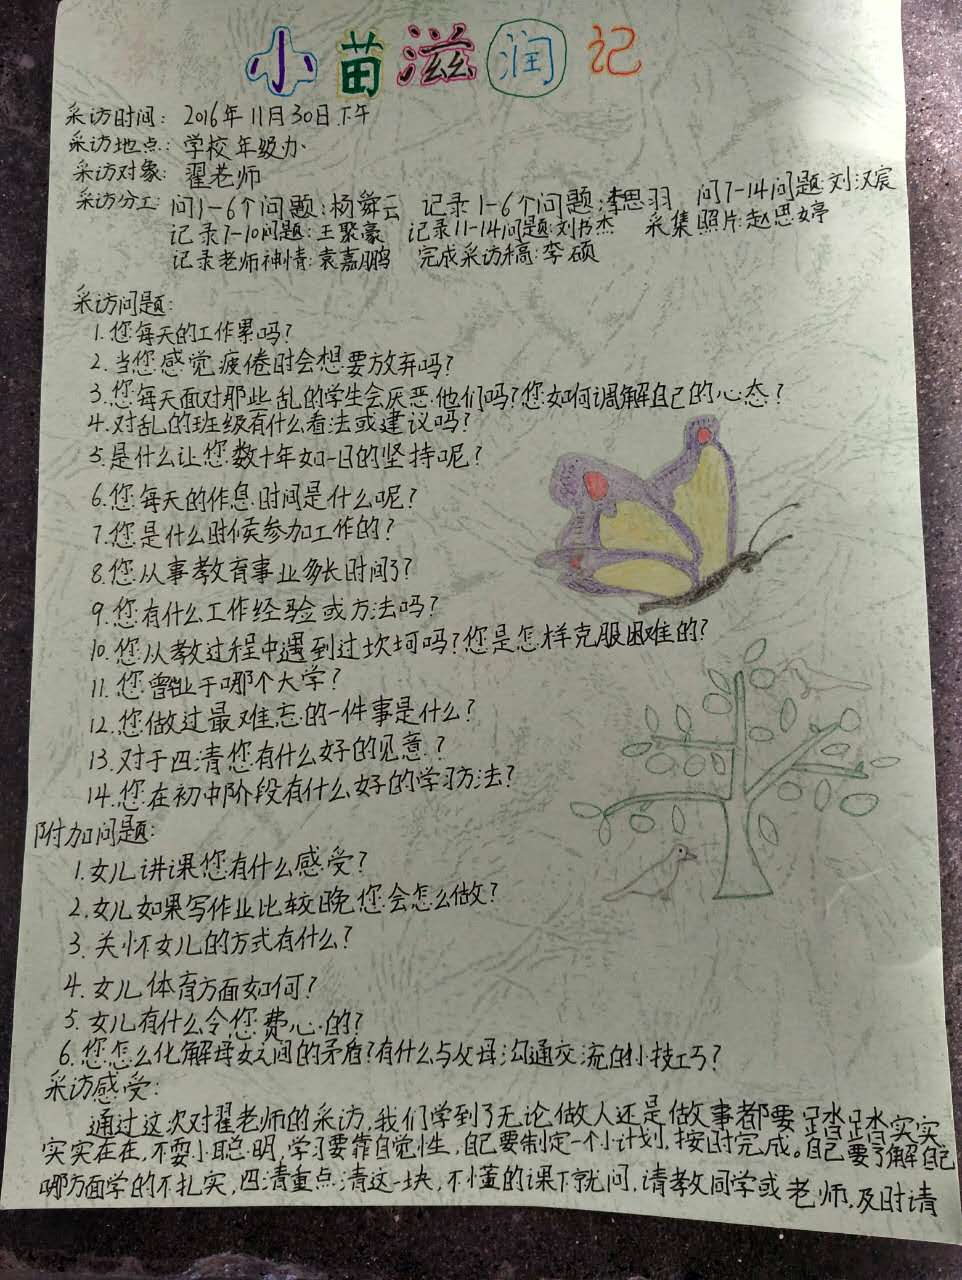 小苗滋润记
采访时间：2016年11月30日下午
采访地点：学校年级办
采访对象：翟老师
采访分工：问1-6个问题：杨舜云 记录1-6个问题：李思羽 问7-14问题：刘汉宸
记录7-10问题：王聚豪 记录11-14问题：刘书杰 采集照片：赵思婷
记录老师神情：袁嘉鹏 完成采访稿：李硕
采访问题：
1.您每天的工作累吗？
2.当您感觉疲倦时会想要放弃吗？
3.您每天面对那些乱的学生会厌恶他们吗？您如何调解自己的心态？
4.对乱的班级有什么看法或建议吗？
5.是什么让您数十年如一日的坚持呢？
6.您每天的作息时间是什么呢？
7.您是什么时候参加工作的？
8.您从事教育事业多长时间了？
9.您有什么工作经验或方法吗？
10.您从教过程中遇到过坎坷吗？您是怎样克服困难的？
11.您曾毕业于哪个大学？
12.您做过最难忘的一件事是什么？
13.对于四清您有什么好的见意？
14.您在初中阶段有什么好的学习方法？
附加问题：
1.女儿讲课您有什么感受？
2.女儿如果写作业比较晚您会怎么做？
3.关怀女儿的方式有什么？
4.女儿体育方面如何？
5.女儿有什么令您费心的？
6.您怎么化解母女之间的矛盾？有什么与父母沟通交流的小技巧？
采访感受：
通过这次对翟老师的采访，我们学到了无论做人还是做事都要踏踏实实
实实在在，不耍小聪明，学习要靠自觉性，自己要制定一个小计划，按时完成。自己要了解自己
哪方面学的不扎实，四清重点清这一块，不懂的课下就问，请教同学或老师，及时请